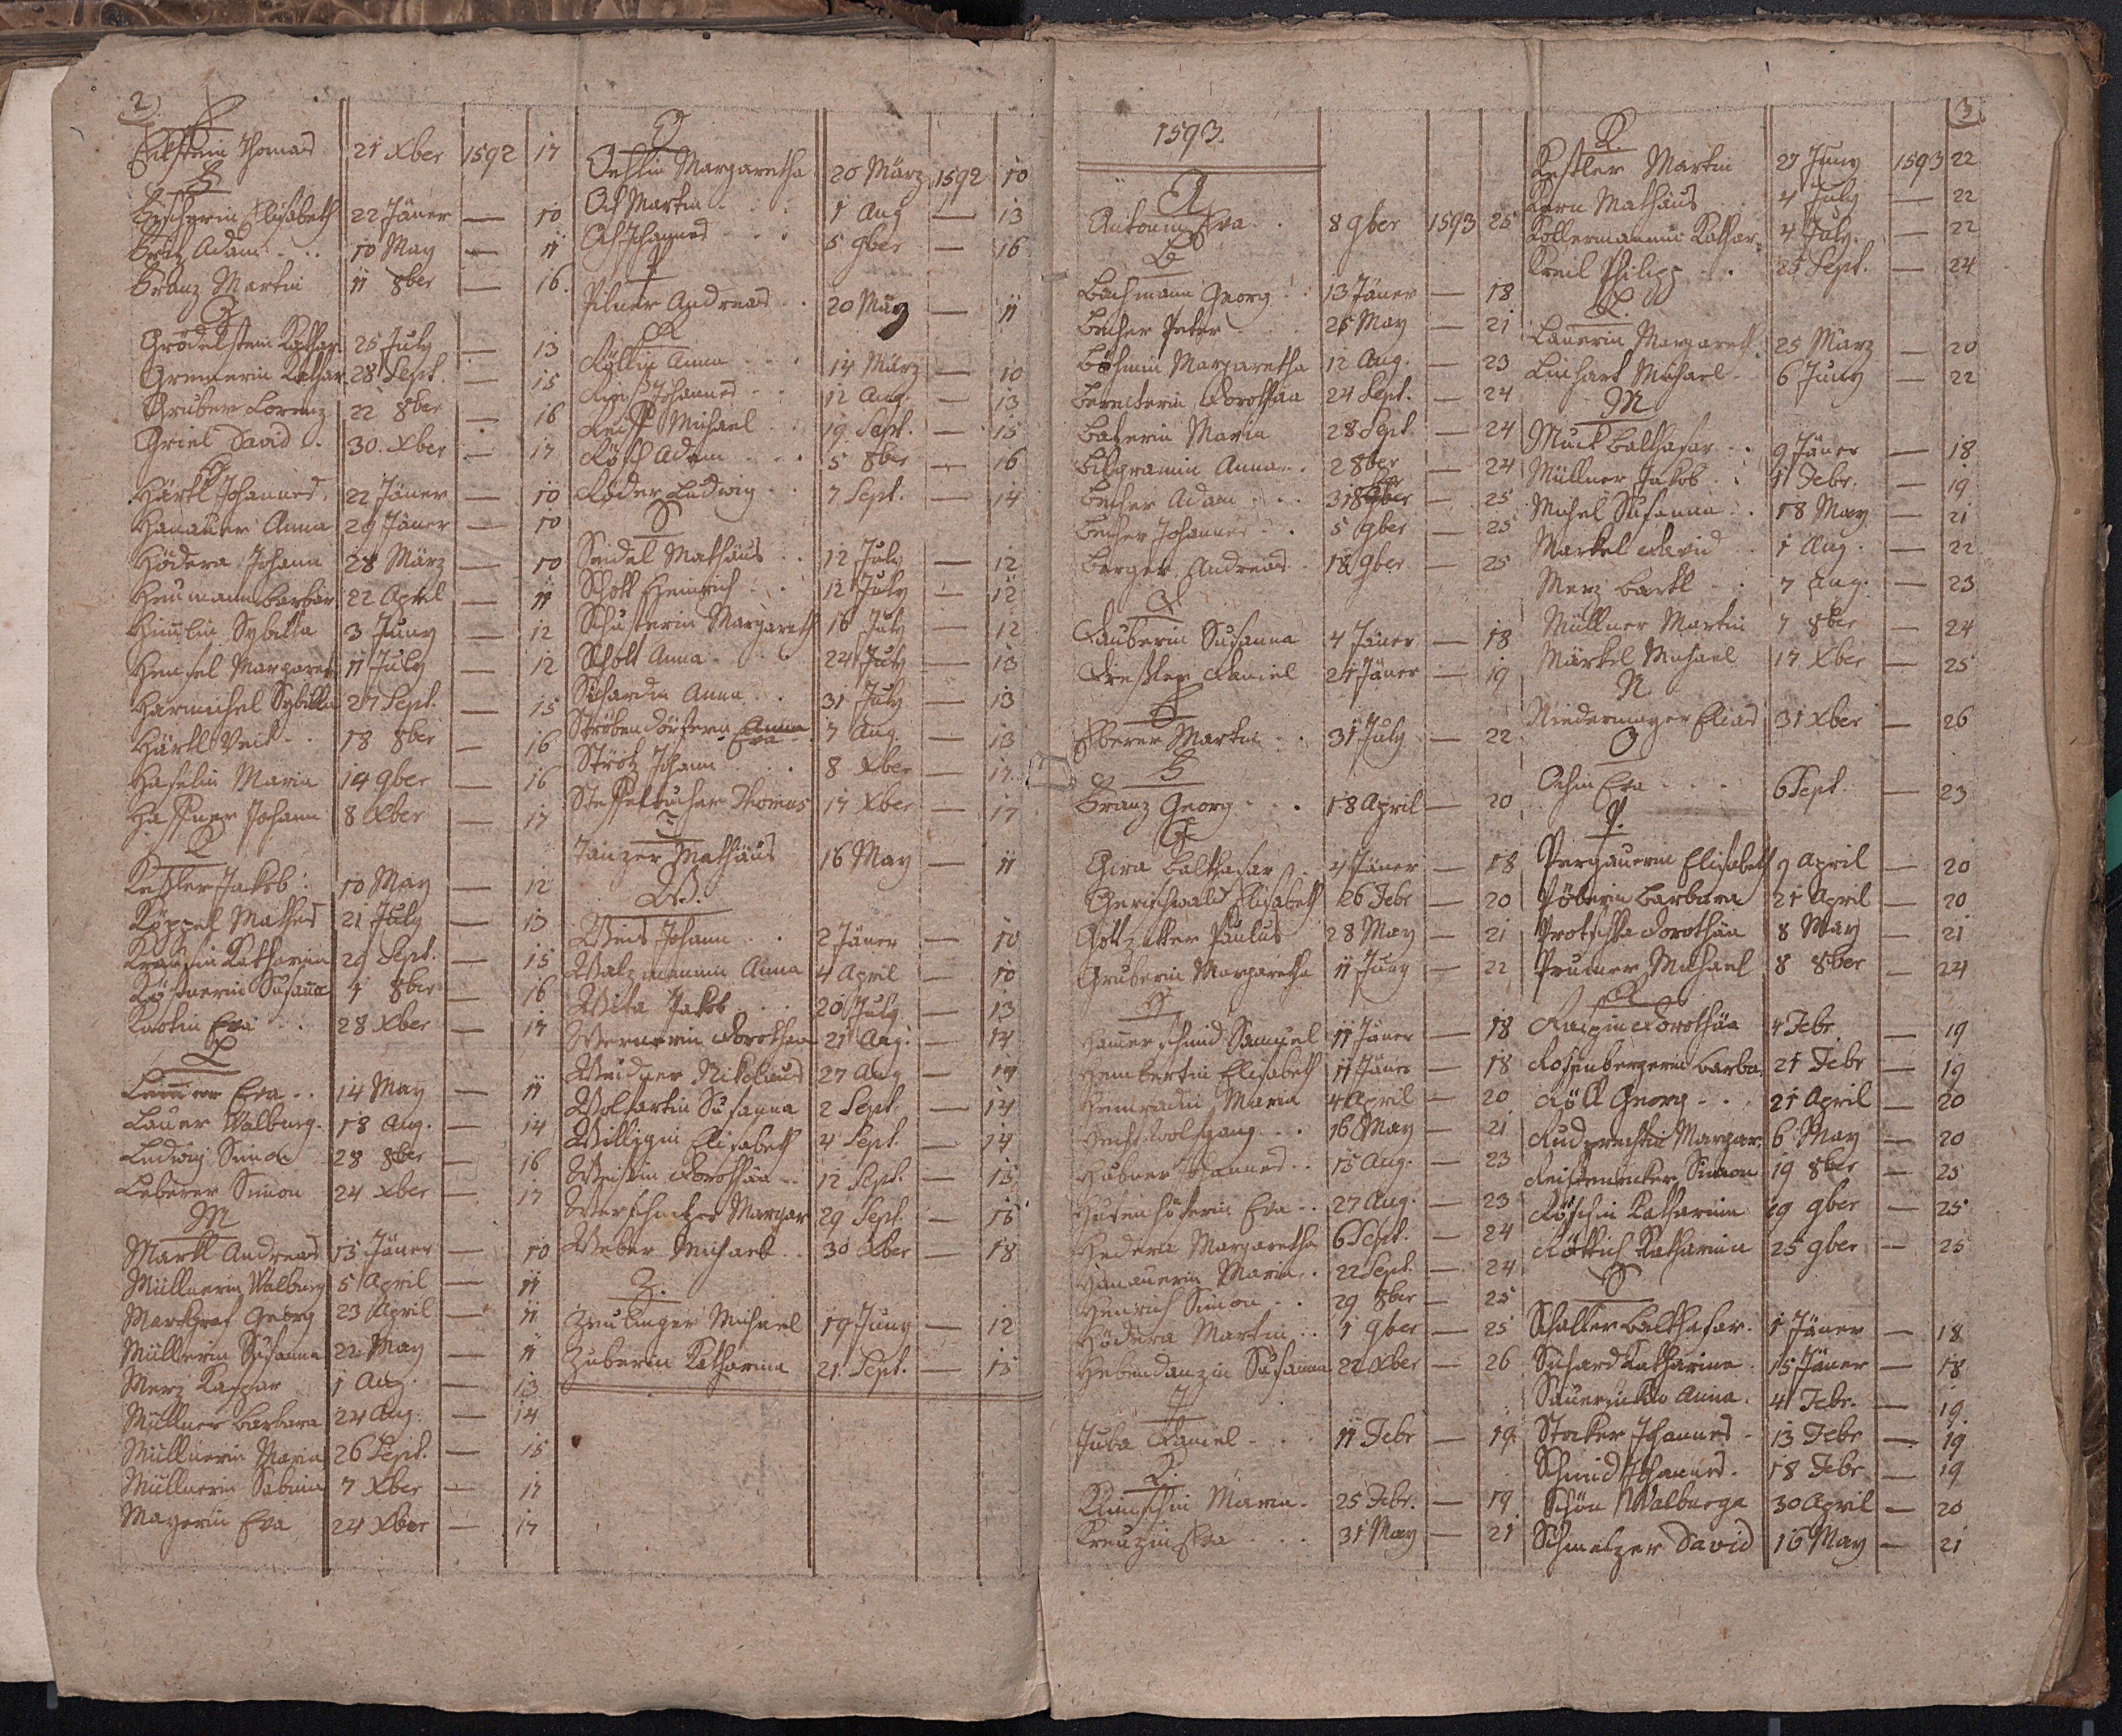 2
E
Eckstein Thomas 21 Xber 1592 17
F
Fischerin Elisabeth 22 Jäner — 10
Fritz Adam 10 May — 11
Franz Martin 11 8ber — 16
G
Grödelstein Kathar 25 July — 13
Gremerin Kathar 28 Sept. — 15
Gruber Lorenz 22 8ber — 16
Griel David 30. Xber — 17
H
Härtl Johannes 22 Jäner — 10
Hanauer Anna 29 Jäner — 10
Hödera Johann 28 März — 10
Heumann Barbar 22 April — 11
Himlin Sybilla 3 Juny — 12
Hensel Margaret 11 July — 12
Harmichel Sybilla 27 Sept. — 15
Härtl Veit 18 8ber — 16
Haselin Maria 14 9ber — 16
Haffner Johann 8 Xber — 17
K
Keßler Jakob 10 May — 12
Köppel Mathes 21 July — 13
Katharina 29 Sept. — 15
Köstnerin Susaña 1 8ber — 16
Eva 28 Xber — 17
L
Eva 14 May — 11
Lauer Walburg. 18 Aug. — 14
Ludwig Simon 28 8ber — 16
Lederer Simon 24 Xber — 17
M
Markl Andreas 15 Jäner — 10
Müllnerin Walburg 5 April — 11
Markgraf Georg 23 April — 11
Müllerin Susanna 22 May — 11
Merz Kaspar 1 Aug — 13
Müllner Barbara 24 Aug. — 14
Müllnerin Maria 26 Sept. — 15
Müllnerin Sabina 7 Xber — 17
Mayerin Eva 24 Xber — 17
O
Oehlin Margaretha 20 März 1592 10
Och Martin 1 Aug — 13
Och Johannes 5 9ber — 16
P
Pilner Andreas 20 May — 11
R
Anna 14 März — 10
Johannes 12 Aug. — 13
Reiß Michael 19. Sept. — 15
Rösch Adam 5 8ber — 16
Röder Ludwig 7 Sept. — 14
S
Seidel Mathäus 12 July — 12
Schott Heinrich 12 July — 12
Schusterin Margareth 16 July — 12
Schott Anna 24 July — 13
Sichardin Anna 31 July — 13
Ströbendörfern Anna Eva 7 Aug. — 13
Strötz Johann 8 Xber — 17
Steffelbucher Thomas 17 Xber — 17
T
Tanzer Mathäus 16 May — 11
W.
Weis Johann 2 Jäner — 10
Walzmannin Anna 4 April — 10
Wita Jakob 20 July — 13
Wernerin Dorothaa 21 Aug. — 14
Weidner Nikolaus 27 Aug — 14
Wolfartin Susanna 2 Sept. — 14
Willigin Elisabeth 4 Sept. — 14
Dorothäa 12 Sept. — 15
Margar 29 Sept. — 15
Weber Michael 30 Xber — 18
Z.
Zeulinger Michael 19 Juny — 12
Zuberin Katharina 21. Sept. — 15
3
1593.
A
Antonin Eva 8 9ber 1593 25
B
Bachmann Georg 13 Jäner — 18
Becher Peter 25 May — 21
Böhmin Margaretha 12 Aug. — 23
Dorothäa 24 Sept. — 24
Maria 28 Sept. — 24
Bilgramin Anna 2 8ber — 24
Becher Adam 31 8ber — 25
Becher Johannes 5 9ber — 25
Berger Andreas 18 9ber — 25
D
Dauberin Susanna 4 Jäner — 18
Dreßler Daniel 24 Jäner — 19
E
Eberer Martin 31 July — 22
F
Franz Georg 18 April — 20
G
Gira Balthasar 4 Jäner — 18
Gerichwald Elisabeth 26 Febr — 20
Gottzetter Paulus 28 May — 21
Gruberin Margaretha 11 Juny — 22
H
Hamerschmid Samuel 11 Jäner — 18
Hembertin Elisabeth 11 Jäner — 18
Henradin Maria 4 April — 20
Hecht Wolfgang 16 May — 21
Hübner Johannes 15 Aug. — 23
Eva 27 Aug. — 23
Hedera Margaretha 6 Sept. — 24
Hanauerin Maria 22 Sept. — 24
Henrich Simon 29 8ber — 25
Hödera Martin 1 9ber — 25
Hebendanzin Susanna 22 Xber — 26
J
Juba Daniel 11 Febr — 19
K.
Maria 25 Febr. — 19
Kreuzin Eva 31 May — 21
K.
Kestler Martin 27 Juny 1593 22
Kern Mathäus 4 July — 22
Kollermannin Kathar. 4 July. — 22
Kreil Philipp 25 Sept. — 24
L.
Lauerin Margareth 25 März — 20
Linhart Michael 6 Juny — 22
M
Muck Balthasar 9 Jäner — 18
Müllner Jakob 11 Febr. — 19
Michel Susanna 18 May — 21
Markel David 1 Aug. — 22
Merz Bartl 7 Aug. — 23
Müllner Martin 7 8ber — 24
Märkel Michael 17 Xber — 25
N.
Niedermayer Elias 31 Xber — 26
O
Ochin Eva 6 Sept. — 23
P.
Pergauerin Elisabeth 9 April — 20
Pöberin Barbara 21 April — 20
Protschka Dorothäa 8 May — 21
Prumer Michael 8 8ber — 24
R
Raspin Dorothäa 4 Febr — 19
Rosenbergerin Barba. 21 Febr — 19
Röll Georg 21 April — 20
Rudprechtin Margar. 6 May — 20
Simon 19 8ber — 25
Röschin Katharina 19 9ber — 25
Röttich Katharina 25 9ber — 25
S
Schaller Balthasar 1 Jäner — 18
Sichard Katharina 15 Jäner — 18
Anna 4 Febr. — 19
Stocker Johannes 13 Febr — 19
Schmid Johannes. 18 Febr — 19
Schön Walburga 30 April — 20
Schmelzer David 16 May — 21